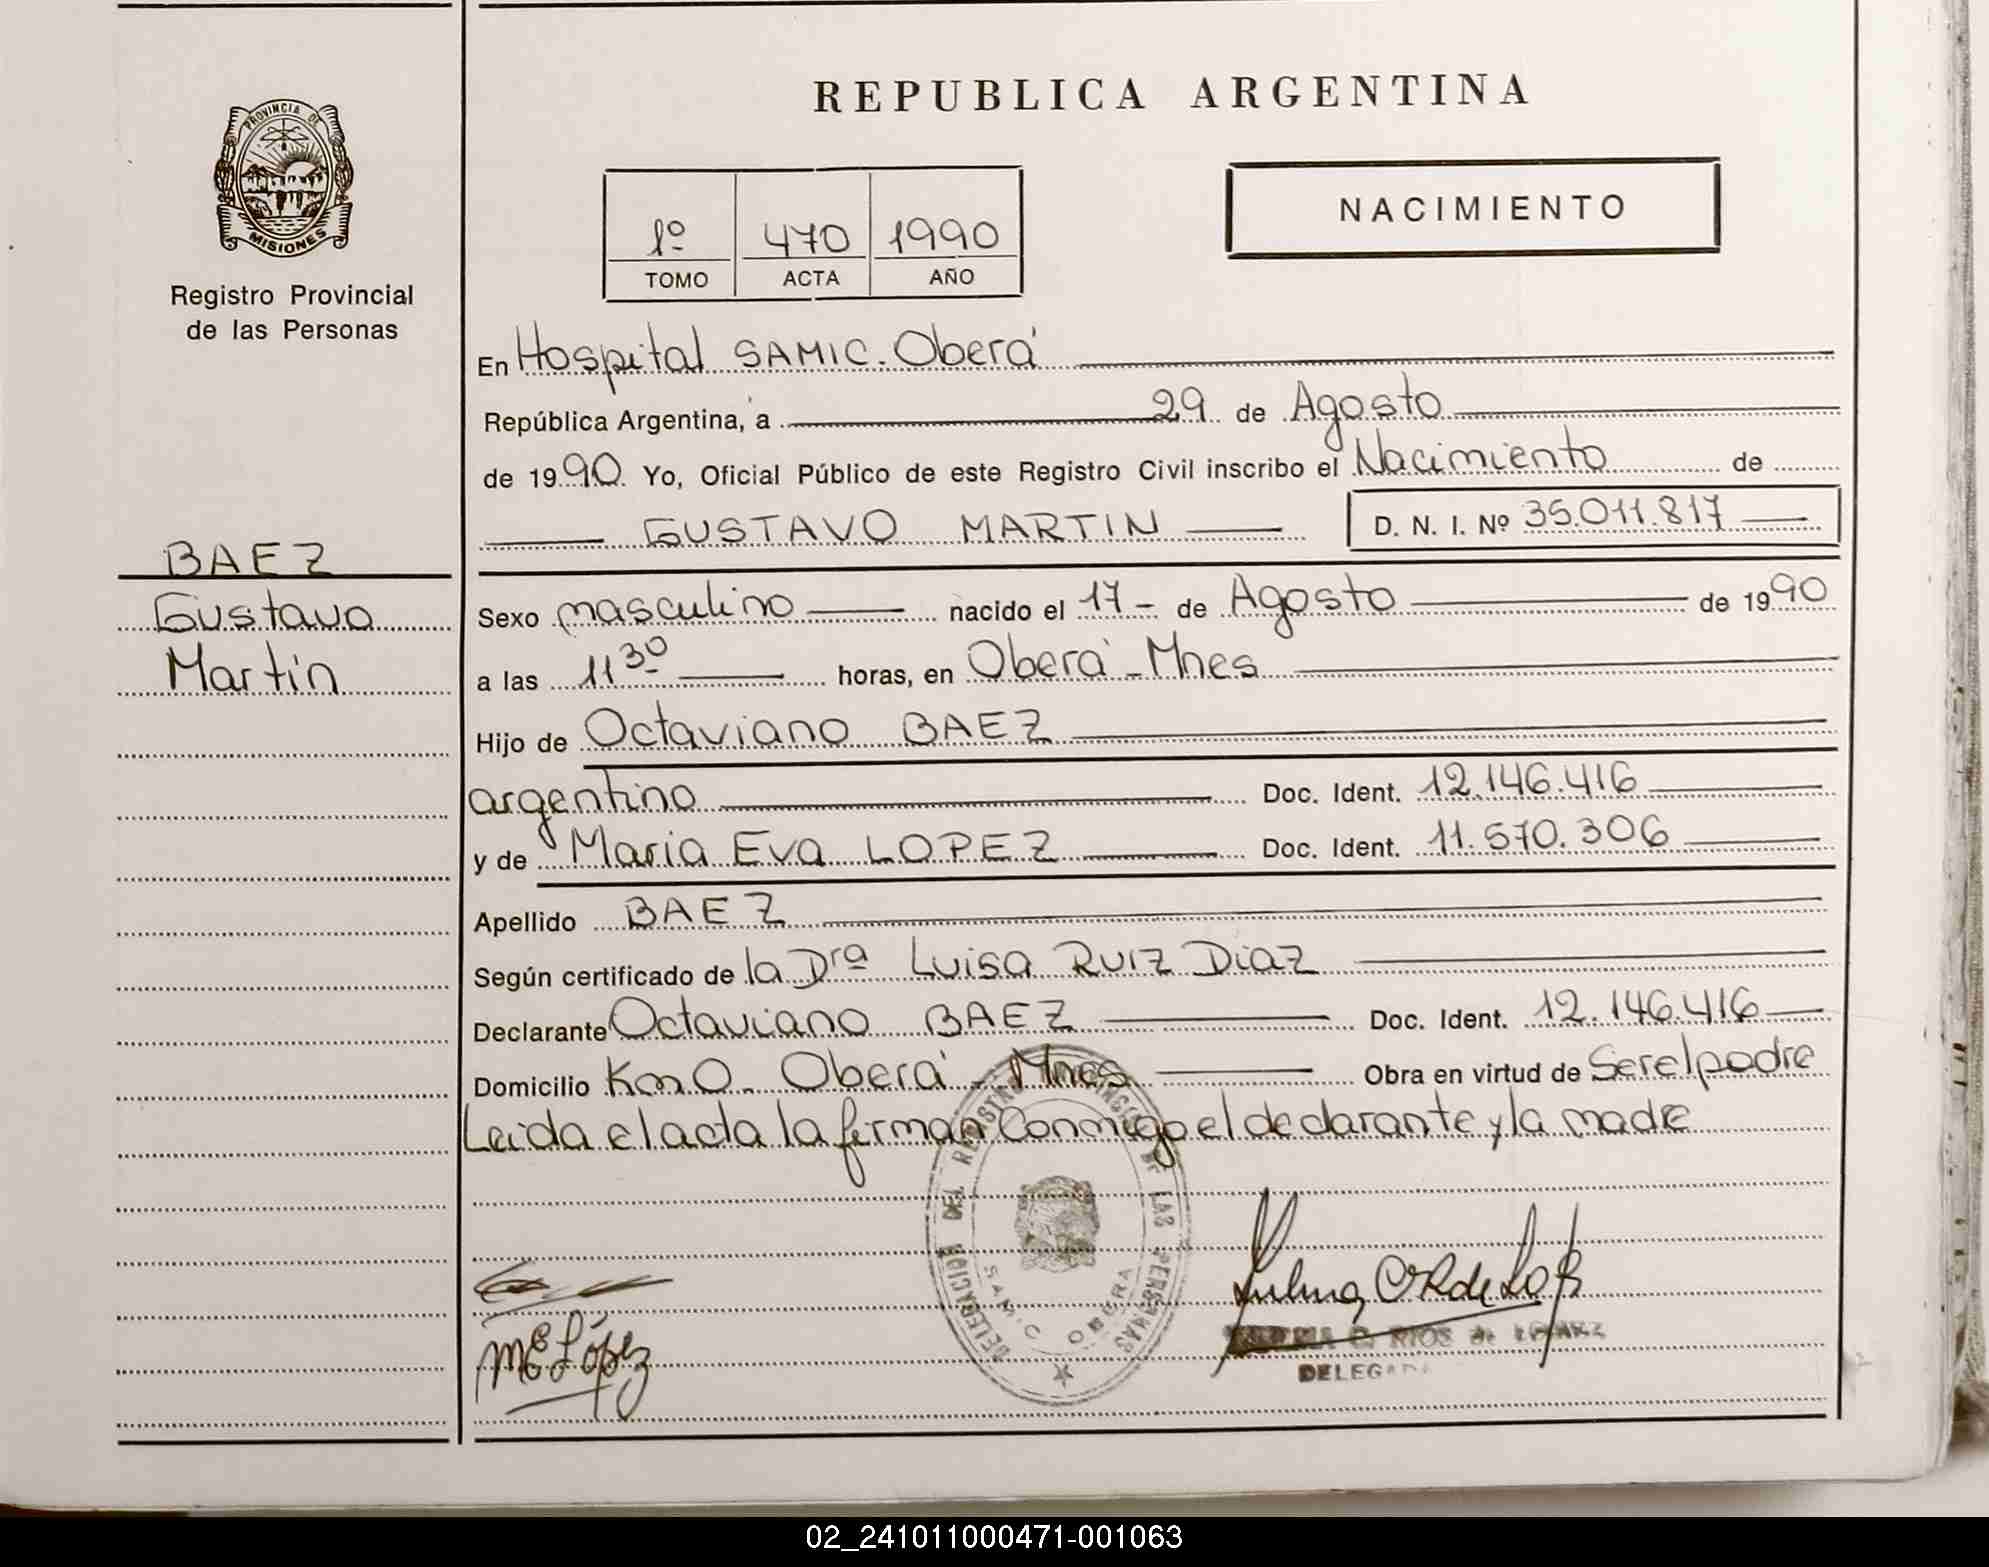 REPUBLICA ARGENTINA
PROVINCIA DE
MISIONES
Registro Provincial
de las Personas
1º 470 1990
TOMO ACTA AÑO
NACIMIENTO
En Hospital SAMIC. Oberá
República Argentina, a 29 de Agosto
de 1990 Yo, Oficial Público de este Registro Civil inscribo el Nacimiento de
GUSTAVO MARTIN D. N. I. Nº 35.011.817
BAEZ
Gustavo
Martin
Sexo masculino nacido el 17 - de Agosto de 1990
a las 11 30 horas, en Oberá - Mnes
Hijo de Octaviano BAEZ
argentino Doc. Ident. 12.146.416
y de Maria Eva LOPEZ Doc. Ident. 11.570.306
Apellido BAEZ
Según certificado de la Dra Luisa RUIZ DIAZ
Declarante Octaviano BAEZ Doc. Ident. 12.146.416
Domicilio Km 0 - Oberá - Mnes Obra en virtud de Ser el padre
Leida el acta la firman Conmigo el declarante y la madre
DELEGACION DEL REGISTRO PROVINCIAL DE LAS PERSONAS
SAMIC OBERA
ME López
RIOS de
02_241011000471-001063